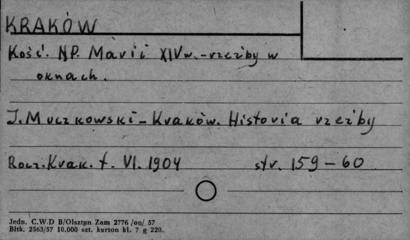 KRAKÓW
Kość. NP. Marii XIVw. - rzeźby w
oknach.
J. Muczkowski - Kraków. Historia rzeźby
Rocz. Krak. t. VI. 1904 str. 159-60
Jedn. C.W.D B/Olsztyn Zam 2776 /oo/ 57
Bltk. 2563/57 10.000 szt. karton kl. 7 g 220.